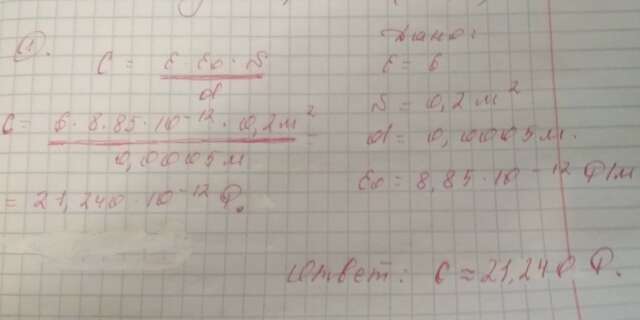 1.
C = ε · εo · S
d
C = 6 · 8,85 · 10⁻¹² · 0,2 м² =
0,0005 м
= 21,240 · 10⁻¹² Ф.
Дано:
ε = 6
S = 0,2 м²
d = 0,0005 м.
εo = 8,85 · 10⁻¹² Ф/м
Ответ: C ≈ 21,240 Ф.